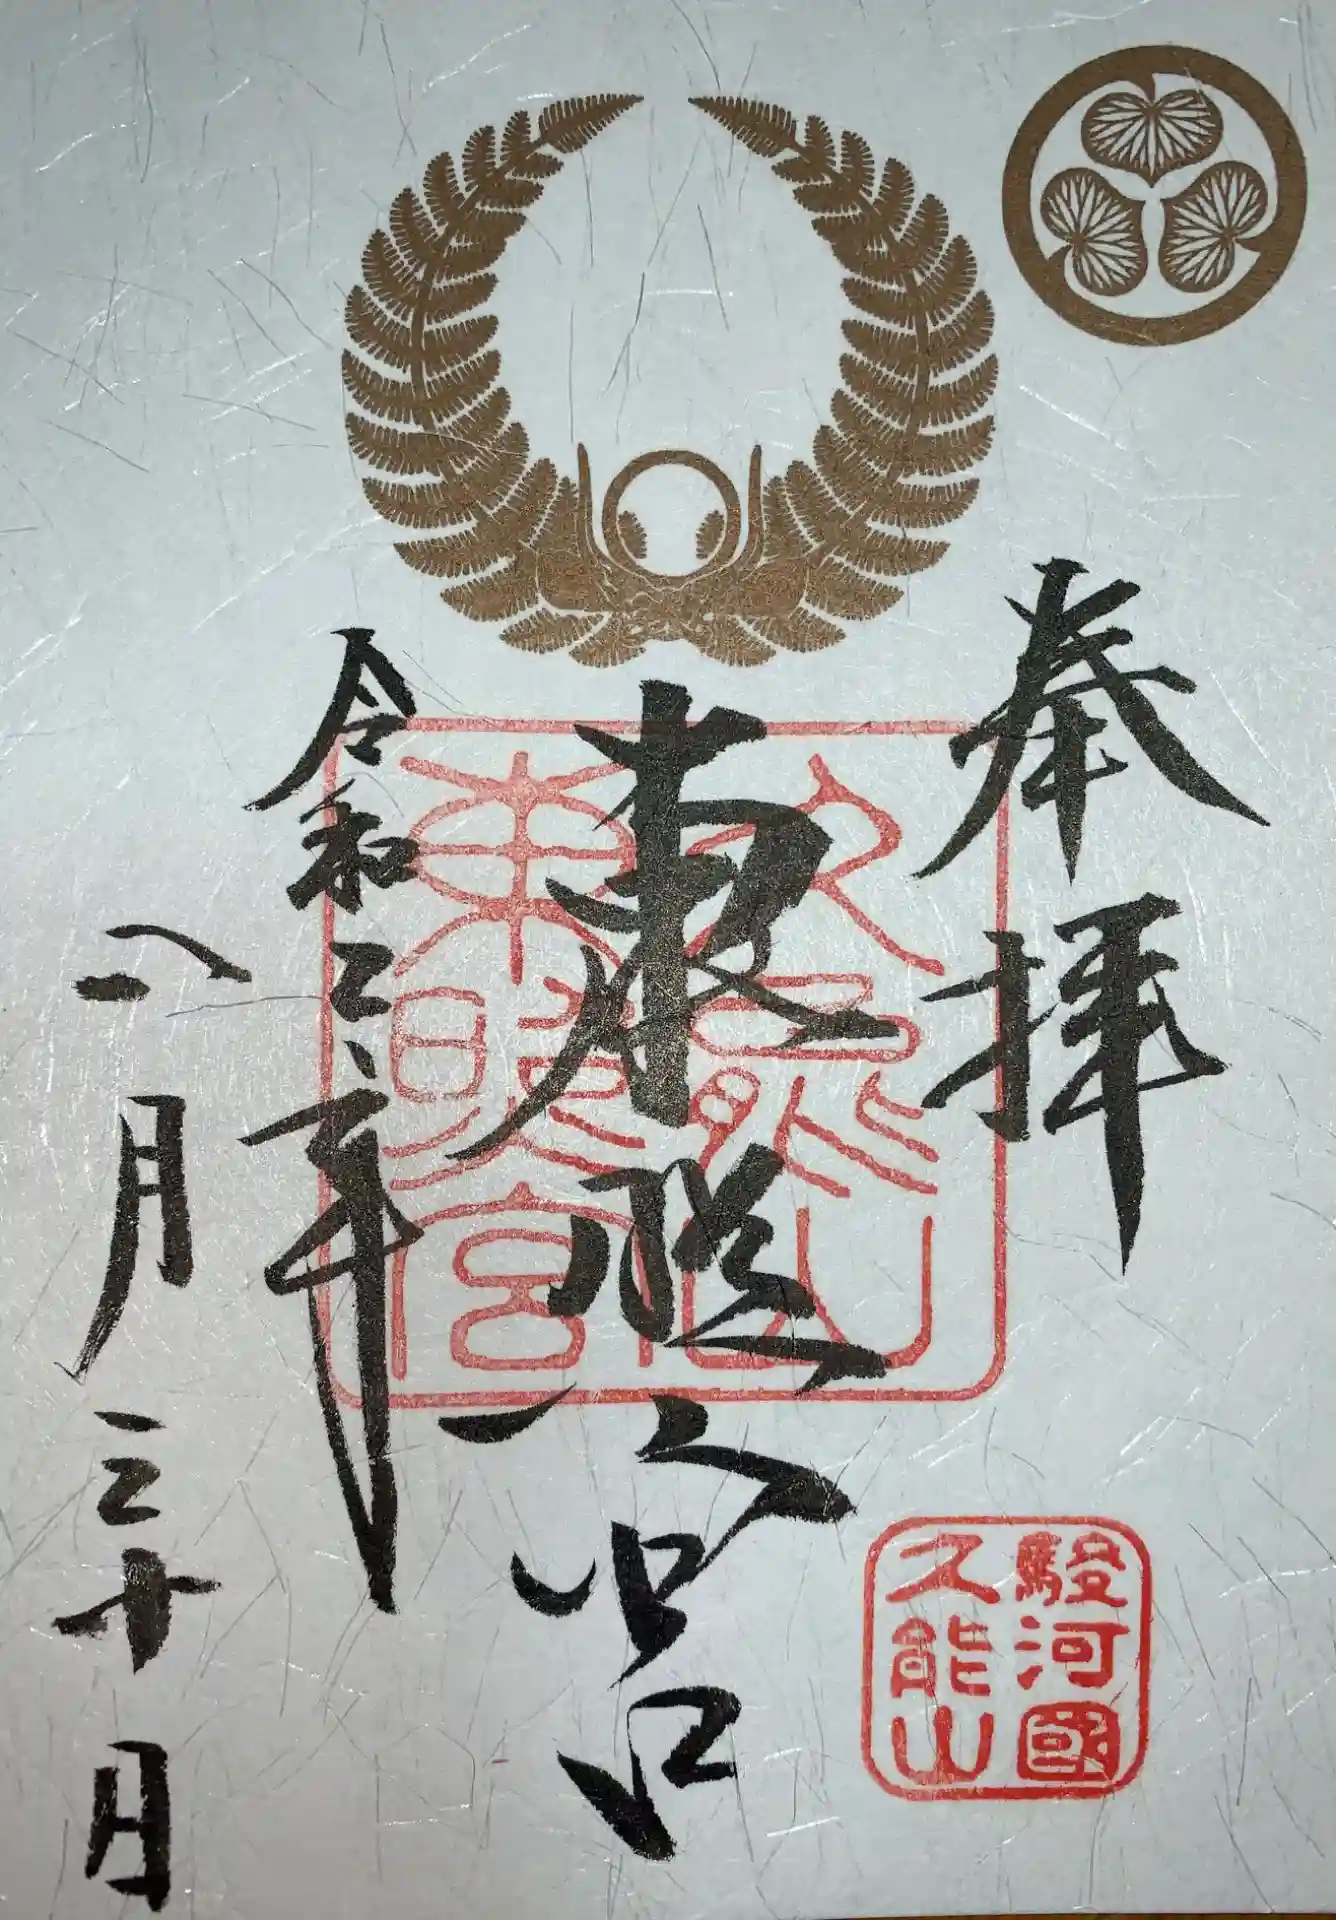 奉拝
東照宮
令和 年
八月三十日
久能山
東照宮
駿河國
久能山